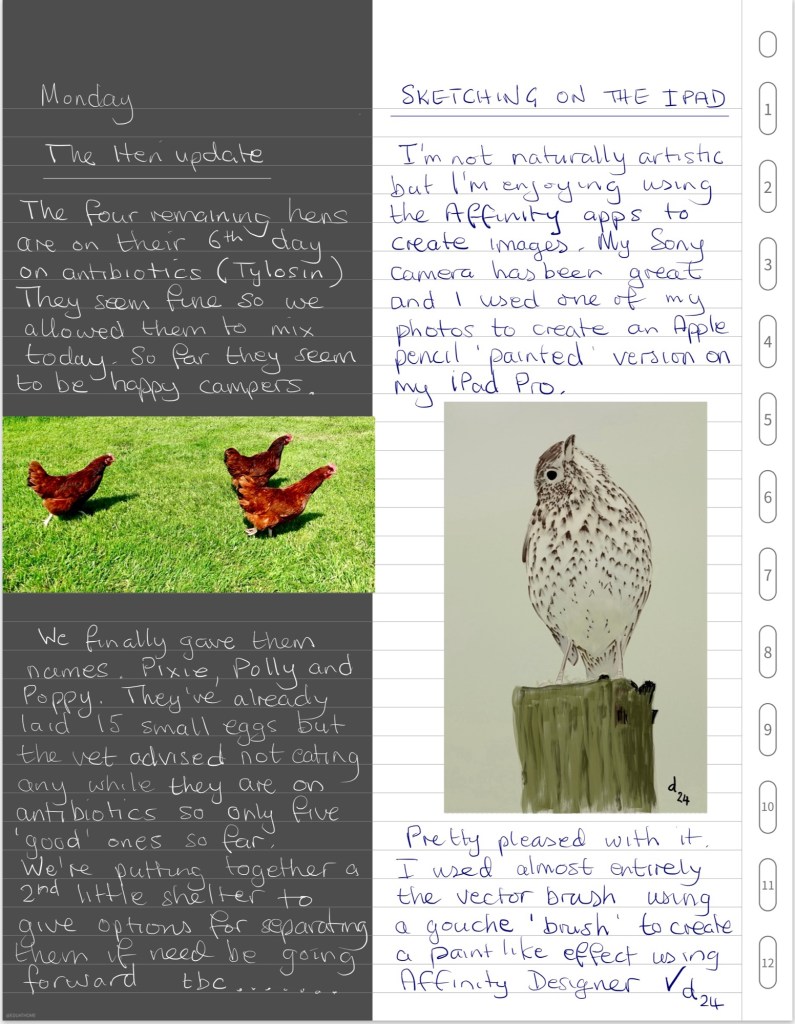 Monday
The Hen update
The four remaining hens
are on their 6th day
on antibiotics (Tylosin)
They seem fine so we
allowed them to mix
today. So far they seem
to be happy campers.
We finally gave them
names. Pixie, Polly and
Poppy. They've already
laid 15 small eggs but
the vet advised not eating
any while they are on
antibiotics so only five
'good' ones so far.
We're putting together a
2nd little shelter to
give options for separating
them if need be going
forward tbc.......
SKETCHING ON THE IPAD
I'm not naturally artistic
but I'm enjoying using
the Affinity apps to
create images. My Sony
camera has been great
and I used one of my
photos to create an Apple
pencil 'painted' version on
my iPad Pro.
d24
Pretty pleased with it.
I used almost entirely
the vector brush using
a gouche 'brush' to create
a paint like effect using
Affinity Designer ✓d24
1
2
3
4
5
6
7
8
9
10
11
12